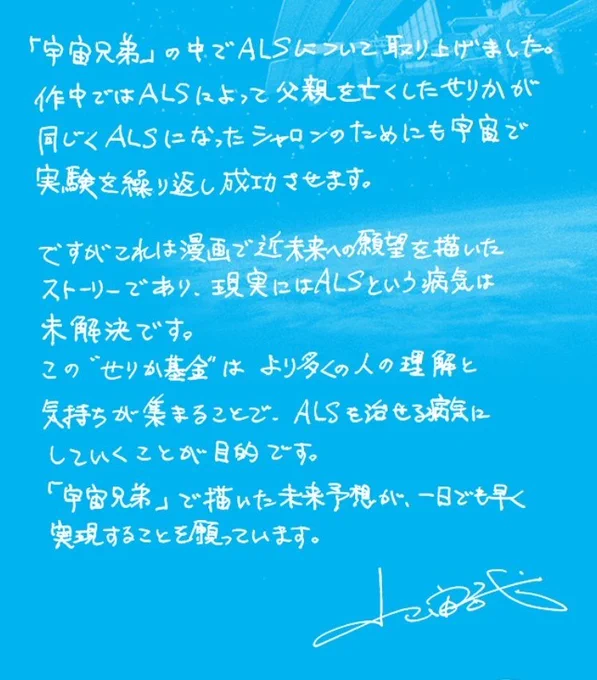 「宇宙兄弟」の中でALSについて取り上げました。
作中ではALSによって父親を亡くしたせりかが
同じくALSになったシャロンのためにも宇宙で
実験を繰り返し成功させます。
ですがこれは漫画で近未来への願望を描いた
ストーリーであり、現実にはALSという病気は
未解決です。
この“せりか基金”は より多くの人の理解と
気持ちが集まることで、ALSを治せる病気に
していくことが目的です。
「宇宙兄弟」で描いた未来予想が、一日でも早く
実現することを願っています。